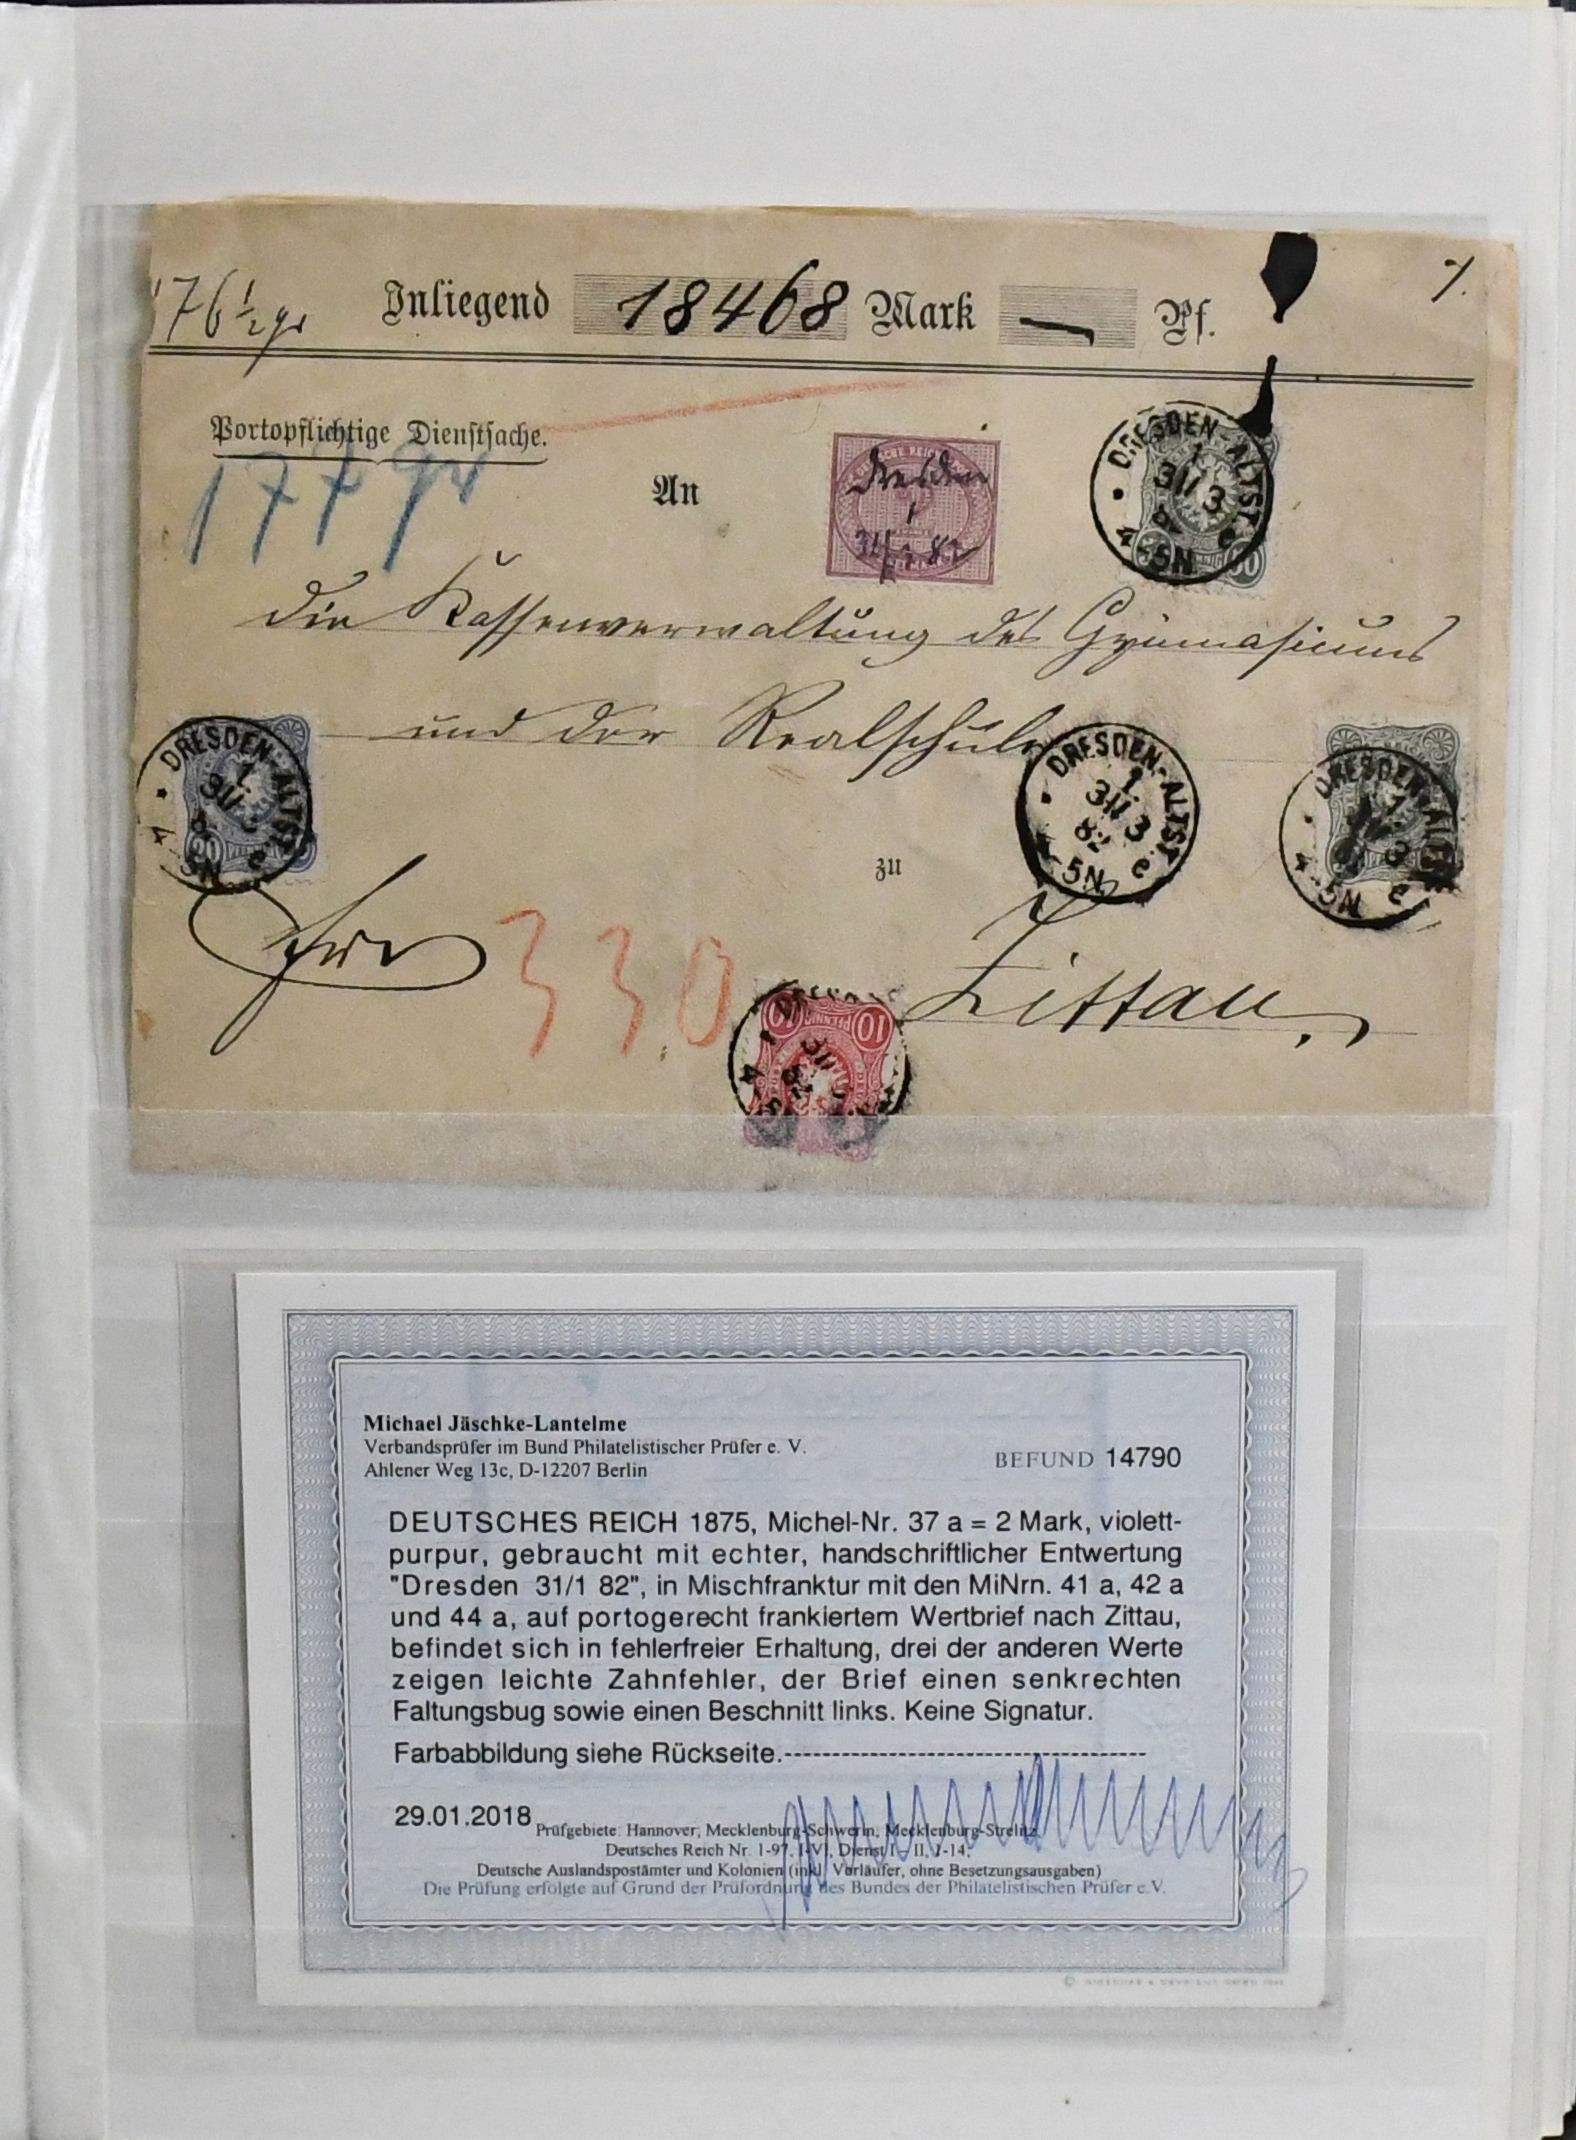 176 1/2 gr Inliegend 18468 Mark — Pf. 1.
Portopflichtige Dienstsache.
177 gr
An
Dresden
1
31/1 82
DRESDEN-ALTST.
1
31 3
8
4-5N e
50
die Kassenverwaltung des Gymnasiums
und der Realschule
DRESDEN-ALTST.
1
31
8
4-5N e
20 PFENNIG
DRESDEN-ALTST.
1
31 3
82
4-5N e
DRESDEN-ALTST.
4-5N e
zu
Zittau,
330
10 PFENNIG 10
Michael Jäschke-Lantelme
Verbandsprüfer im Bund Philatelistischer Prüfer e. V.
Ahlener Weg 13c, D-12207 Berlin
BEFUND 14790
DEUTSCHES REICH 1875, Michel-Nr. 37 a = 2 Mark, violett-
purpur, gebraucht mit echter, handschriftlicher Entwertung
"Dresden 31/1 82", in Mischfranktur mit den MiNrn. 41 a, 42 a
und 44 a, auf portogerecht frankiertem Wertbrief nach Zittau,
befindet sich in fehlerfreier Erhaltung, drei der anderen Werte
zeigen leichte Zahnfehler, der Brief einen senkrechten
Faltungsbug sowie einen Beschnitt links. Keine Signatur.
Farbabbildung siehe Rückseite.--------------------------------------
29.01.2018
Prüfgebiete: Hannover, Mecklenburg-Schwerin, Mecklenburg-Strelitz,
Deutsches Reich Nr. 1-97, I-VI, Dienst I - II, 1-14;
Deutsche Auslandspostämter und Kolonien (inkl. Vorläufer, ohne Besetzungsausgaben)
Die Prüfung erfolgte auf Grund der Prüfordnung des Bundes der Philatelistischen Prüfer e.V.